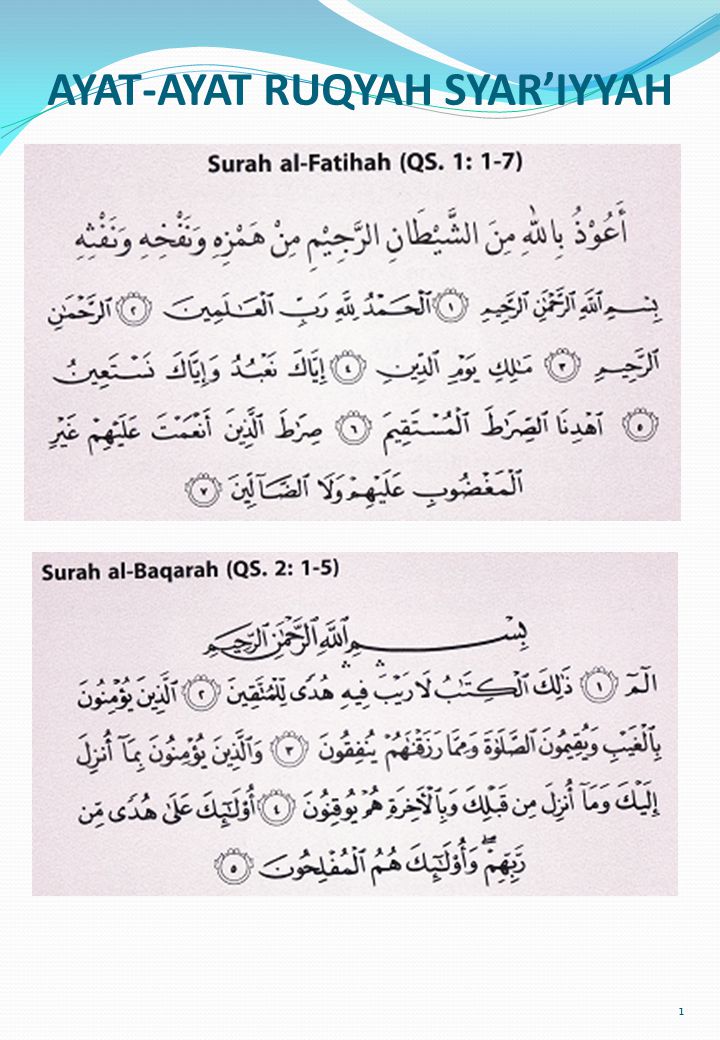 AYAT-AYAT RUQYAH SYAR’IYYAH
Surah al-Fatihah (QS. 1: 1-7)
أَعُوْذُ بِاللهِ مِنَ الشَّيْطَانِ الرَّجِيْمِ مِنْ هَمْزِهِ وَنَفْخِهِ وَنَفْثِهِ
بِسْمِ ٱللَّهِ ٱلرَّحْمَٰنِ ٱلرَّحِيمِ ١ ٱلْحَمْدُ لِلَّهِ رَبِّ ٱلْعَـٰلَمِينَ ٢ ٱلرَّحْمَـٰنِ
ٱلرَّحِيمِ ٣ مَـٰلِكِ يَوْمِ ٱلدِّينِ ٤ إِيَّاكَ نَعْبُدُ وَإِيَّاكَ نَسْتَعِينُ
٥ ٱهْدِنَا ٱلصِّرَٰطَ ٱلْمُسْتَقِيمَ ٦ صِرَٰطَ ٱلَّذِينَ أَنْعَمْتَ عَلَيْهِمْ غَيْرِ
ٱلْمَغْضُوبِ عَلَيْهِمْ وَلَا ٱلضَّآلِّينَ ٧
Surah al-Baqarah (QS. 2: 1-5)
بِسْمِ ٱللَّهِ ٱلرَّحْمَٰنِ ٱلرَّحِيمِ
الٓمٓ ١ ذَٰلِكَ ٱلْكِتَـٰبُ لَا رَيْبَ ۛ فِيهِ ۛ هُدًى لِّلْمُتَّقِينَ ٢ ٱلَّذِينَ يُؤْمِنُونَ
بِٱلْغَيْبِ وَيُقِيمُونَ ٱلصَّلَوٰةَ وَمِمَّا رَزَقْنَـٰهُمْ يُنفِقُونَ ٣ وَٱلَّذِينَ يُؤْمِنُونَ بِمَآ أُنزِلَ
إِلَيْكَ وَمَآ أُنزِلَ مِن قَبْلِكَ وَبِٱلْـَٔاخِرَةِ هُمْ يُوقِنُونَ ٤ أُو۟لَـٰٓئِكَ عَلَىٰ هُدًى مِّن
رَّبِّهِمْ ۖ وَأُو۟لَـٰٓئِكَ هُمُ ٱلْمُفْلِحُونَ ٥
1